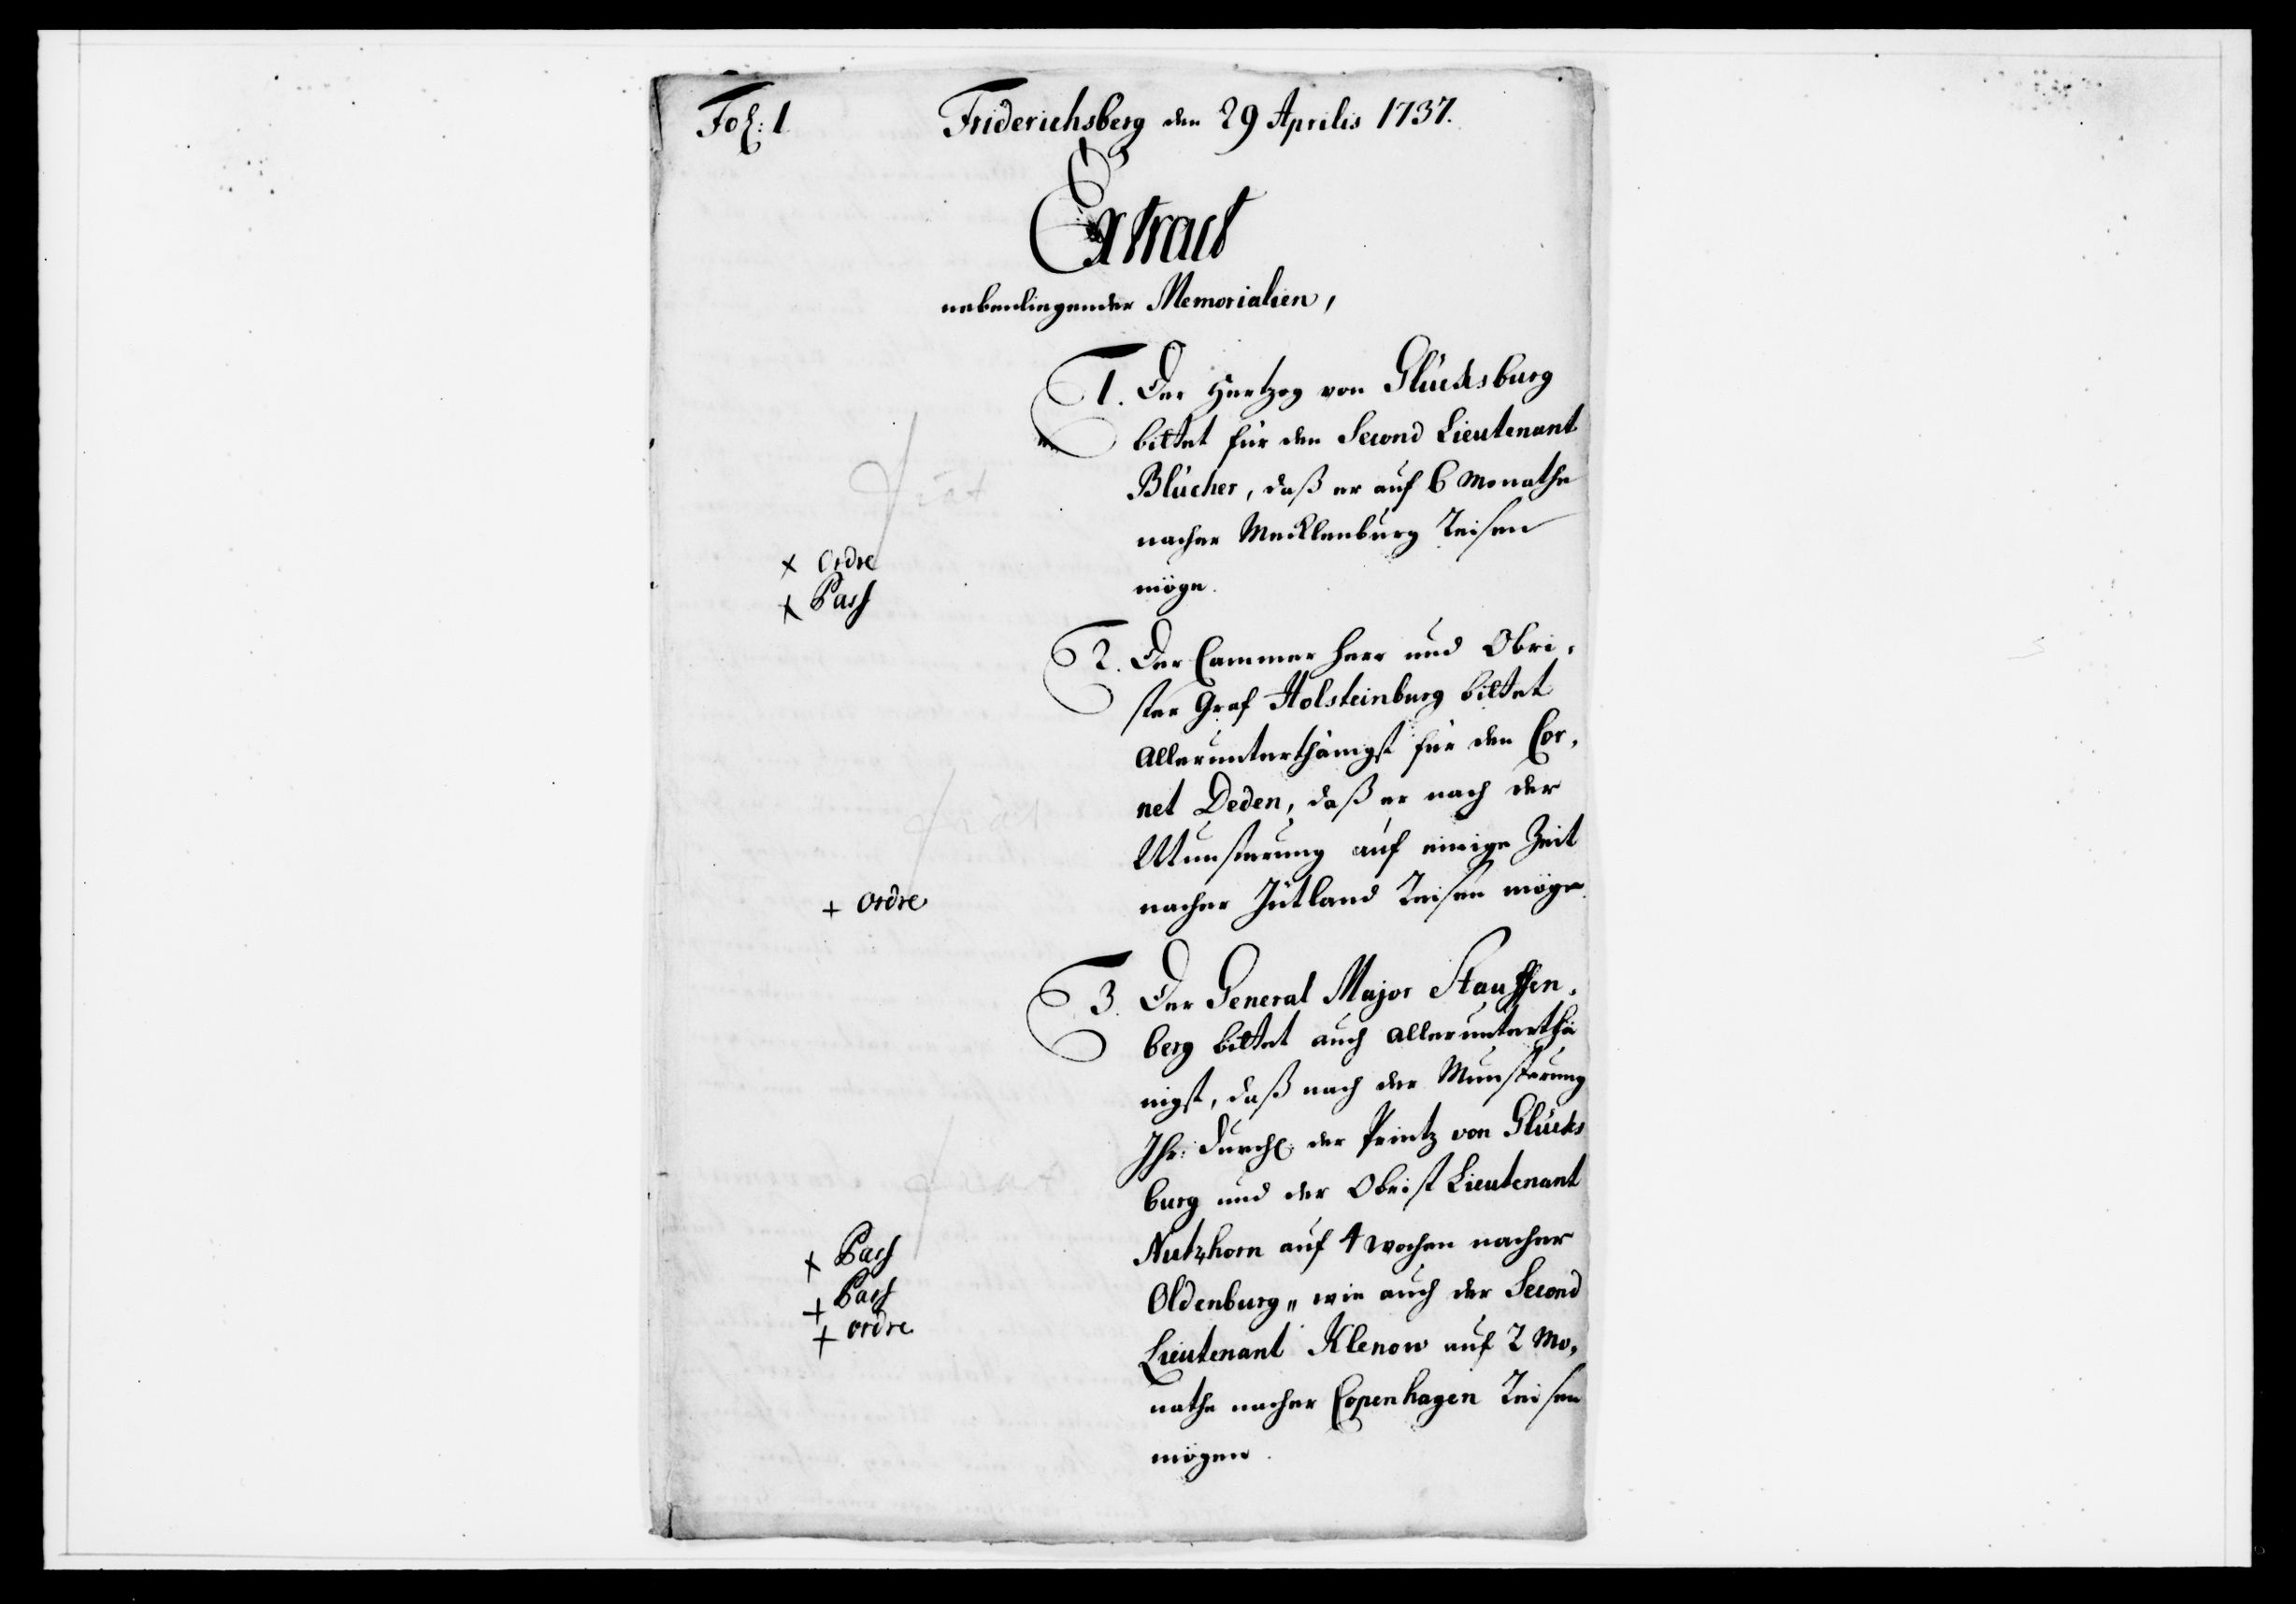 Fol: 1.
Friderichsberg den 29 Aprilis 1737.
Extract
nebenliegender Memorialien,
1. Der Hertzog von Glücksburg
bittet für den Second Lieutenant
Blücher, daß er auf 6 Monathe
nacher Mecklenburg Reisen
möge.
fiat
x Ordre
x Pass
2. Der Cammer Herr und Obri,
ster Graf Holsteinburg bittet
Allerunterthänigst für den Cor,
net Deden, daß er nach der
Munsterung auf einige Zeit
nacher Jütland Reisen möge.
fiat
+ ordre
3. Der General Major Stauffen,
berg bittet auch allerunterthä
nigst, daß nach der Munsterung
Ihr: Durchl. der Printz von Glücks
burg und der Obrist Lieutenant
Nutzhorn auf 4 Wochen nacher
Oldenburg„ wie auch der Second
Lieutenant Klenow auf 2 Mo,
nathe nacher Copenhagen Reisen
mögen.
fiat
x Pass
+ Pass
+ ordre